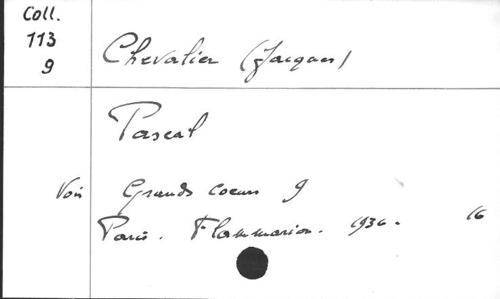 Coll.
113
9
Chevalier (Jacques)
Pascal
Voir Grands coeurs 9
Paris. Flammarion. 1936. 16